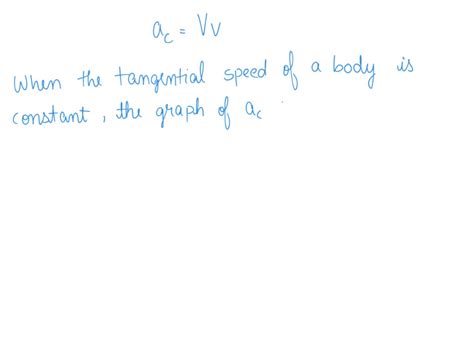 ac = Vv
When the tangential speed of a body is
constant, the graph of ac